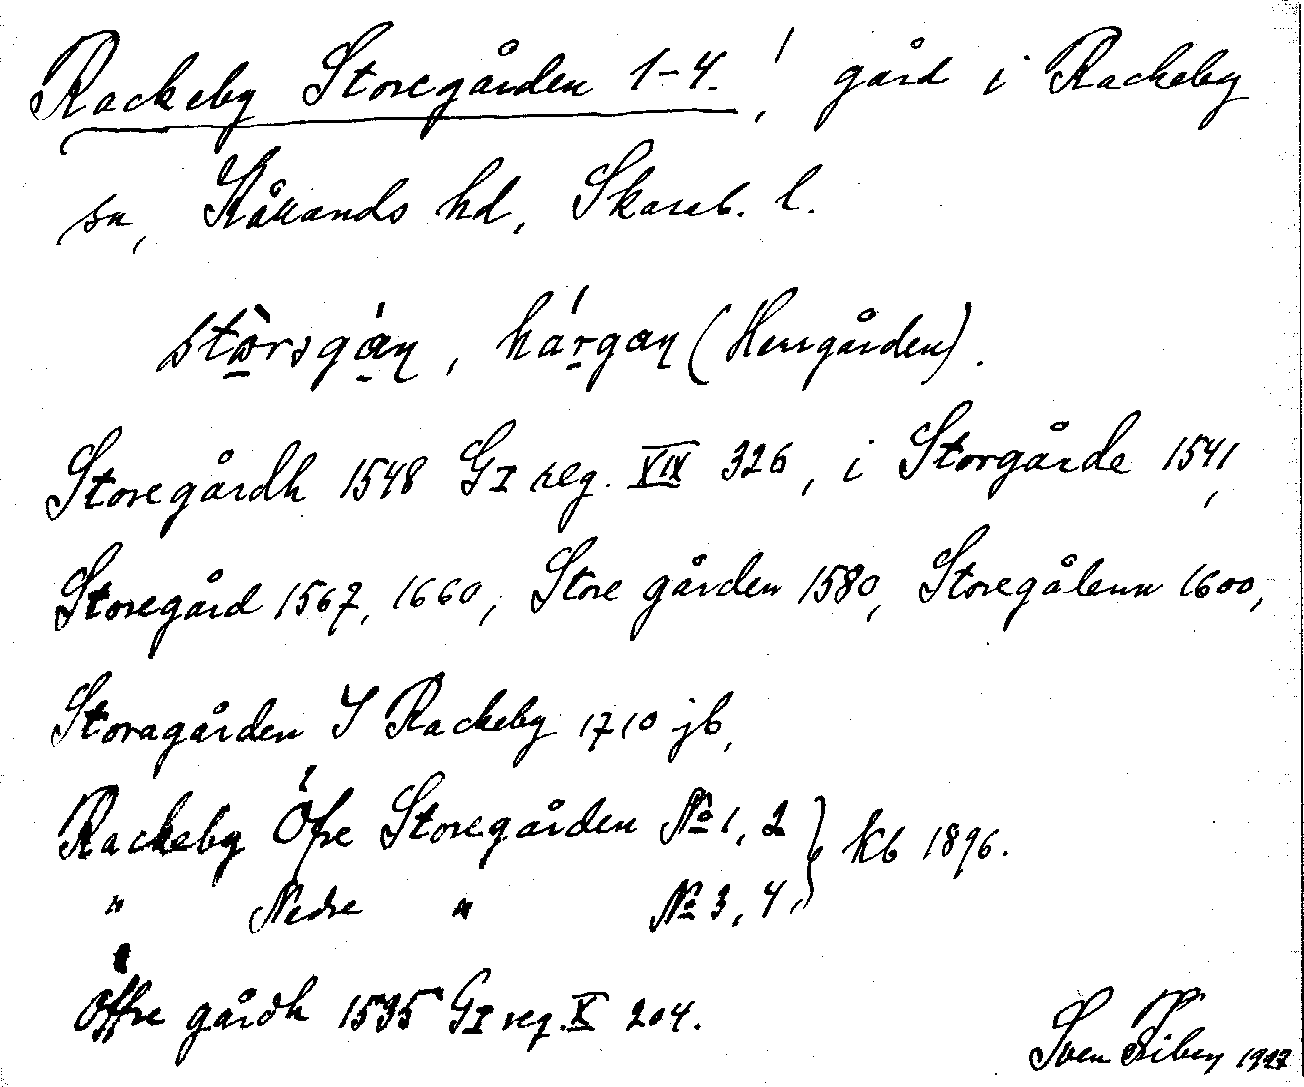 Rackeby Storegården 1-4.! gård i Rackeby
sn, Kållands hd, Skarab. l.
stòrsgán, hárgan (Herrgården).
Storegårdh 1548 GI reg. XIX 326, i Storgårde 1541,
Storegård 1567, 1660, Store gården 1580, Storegålenn 1600,
Storagården I Rackeby 1710 jb,
Rackeby Öfre Storegården No 1, 2 } kb 1896.
" Nedre " No 3, 4
Öffre gårdh 1535 GI reg. X 204.
Sven 1927